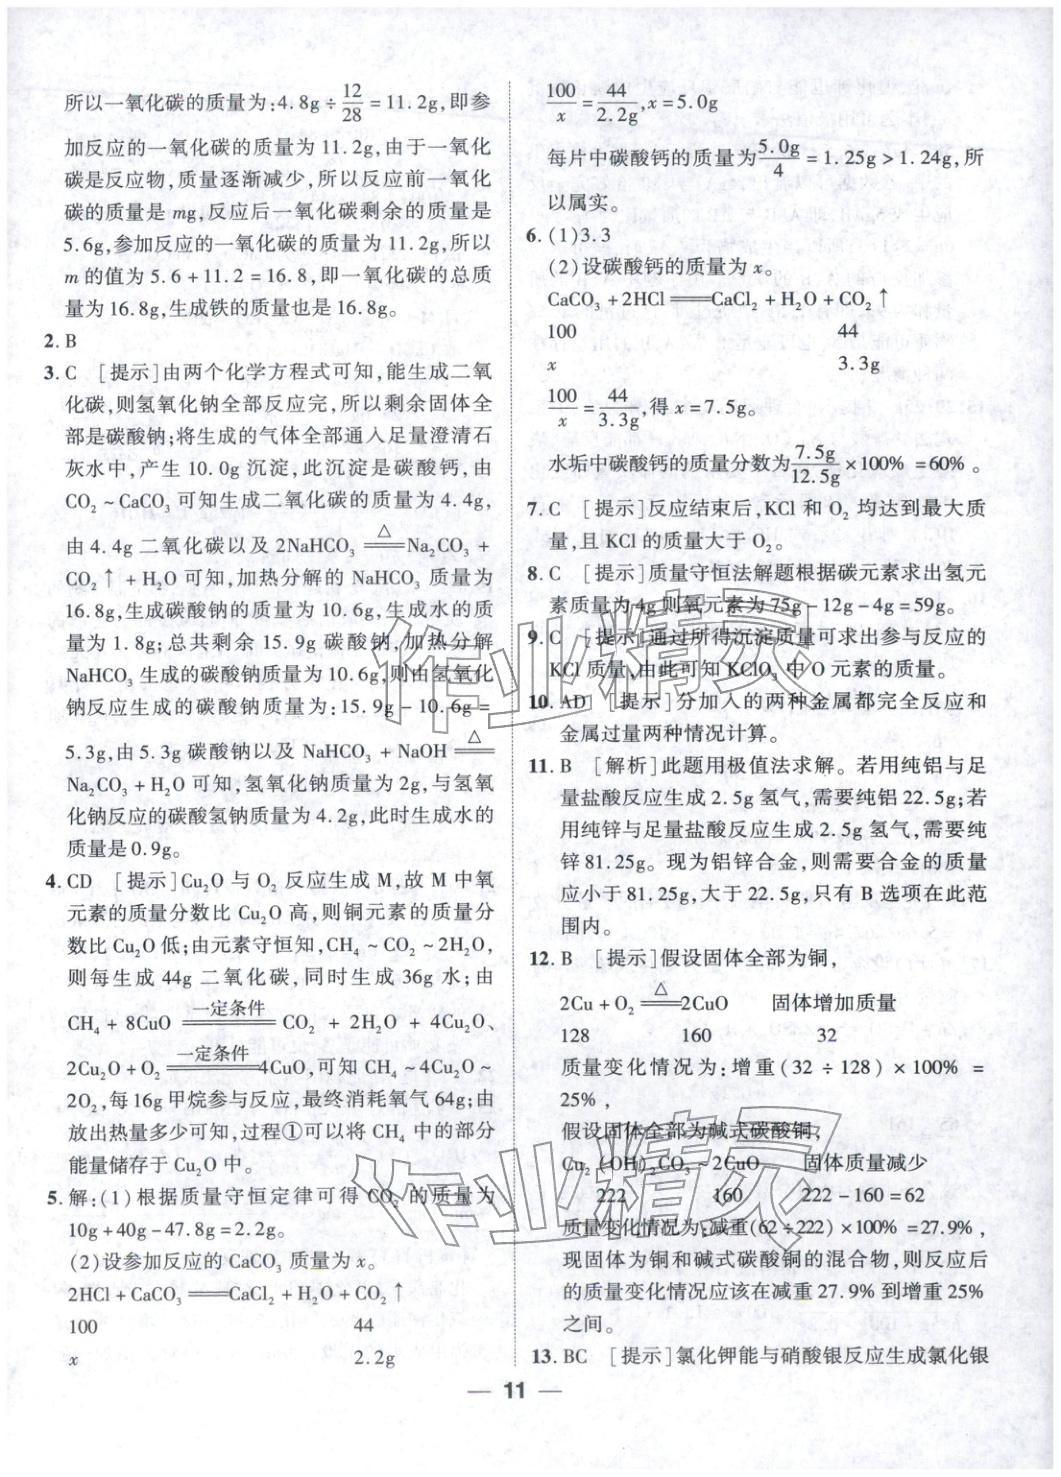 所以一氧化碳的质量为:4.8g÷12/28=11.2g,即参
加反应的一氧化碳的质量为11.2g,由于一氧化
碳是反应物,质量逐渐减少,所以反应前一氧化
碳的质量是mg,反应后一氧化碳剩余的质量是
5.6g,参加反应的一氧化碳的质量为11.2g,所以
m的值为5.6+11.2=16.8,即一氧化碳的总质
量为16.8g,生成铁的质量也是16.8g。
2.B
3.C [提示]由两个化学方程式可知,能生成二氧
化碳,则氢氧化钠全部反应完,所以剩余固体全
部是碳酸钠;将生成的气体全部通入足量澄清石
灰水中,产生10.0g沉淀,此沉淀是碳酸钙,由
CO₂~CaCO₃可知生成二氧化碳的质量为4.4g,
由4.4g二氧化碳以及2NaHCO₃ =△= Na₂CO₃+
CO₂↑+H₂O可知,加热分解的NaHCO₃质量为
16.8g,生成碳酸钠的质量为10.6g,生成水的质
量为1.8g;总共剩余15.9g碳酸钠,加热分解
NaHCO₃生成的碳酸钠质量为10.6g,则由氢氧化
钠反应生成的碳酸钠质量为:15.9g-10.6g=
5.3g,由5.3g碳酸钠以及NaHCO₃+NaOH =△=
Na₂CO₃+H₂O可知,氢氧化钠质量为2g,与氢氧
化钠反应的碳酸氢钠质量为4.2g,此时生成水的
质量是0.9g。
4.CD [提示]Cu₂O与O₂反应生成M,故M中氧
元素的质量分数比Cu₂O高,则铜元素的质量分
数比Cu₂O低;由元素守恒知,CH₄~CO₂~2H₂O,
则每生成44g二氧化碳,同时生成36g水;由
CH₄+8CuO =一定条件= CO₂+2H₂O+4Cu₂O、
2Cu₂O+O₂ =一定条件= 4CuO,可知CH₄~4Cu₂O~
2O₂,每16g甲烷参与反应,最终消耗氧气64g;由
放出热量多少可知,过程①可以将CH₄中的部分
能量储存于Cu₂O中。
5.解:(1)根据质量守恒定律可得CO₂的质量为
10g+40g-47.8g=2.2g。
(2)设参加反应的CaCO₃质量为x。
2HCl+CaCO₃══CaCl₂+H₂O+CO₂↑
100 44
x 2.2g
100/x=44/2.2g,x=5.0g
每片中碳酸钙的质量为5.0g/4=1.25g>1.24g,所
以属实。
6.(1)3.3
(2)设碳酸钙的质量为x。
CaCO₃+2HCl══CaCl₂+H₂O+CO₂↑
100 44
x 3.3g
100/x=44/3.3g,得x=7.5g。
水垢中碳酸钙的质量分数为7.5g/12.5g×100%=60%。
7.C [提示]反应结束后,KCl和O₂均达到最大质
量,且KCl的质量大于O₂。
8.C [提示]质量守恒法解题根据碳元素求出氢元
素质量为4g则氧元素为75g-12g-4g=59g。
9.C [提示]通过所得沉淀质量可求出参与反应的
KCl质量,由此可知KClO₃中O元素的质量。
10.AD [提示]分加入的两种金属都完全反应和
金属过量两种情况计算。
11.B [解析]此题用极值法求解。若用纯铝与足
量盐酸反应生成2.5g氢气,需要纯铝22.5g;若
用纯锌与足量盐酸反应生成2.5g氢气,需要纯
锌81.25g。现为铝锌合金,则需要合金的质量
应小于81.25g,大于22.5g,只有B选项在此范
围内。
12.B [提示]假设固体全部为铜,
2Cu+O₂ =△= 2CuO 固体增加质量
128 160 32
质量变化情况为:增重(32÷128)×100%=
25%,
假设固体全部为碱式碳酸铜,
Cu₂(OH)₂CO₃~2CuO 固体质量减少
222 160 222-160=62
质量变化情况为:减重(62÷222)×100%=27.9%,
现固体为铜和碱式碳酸铜的混合物,则反应后
的质量变化情况应该在减重27.9%到增重25%
之间。
13.BC [提示]氯化钾能与硝酸银反应生成氯化银
— 11 —
作业精灵
作业精灵